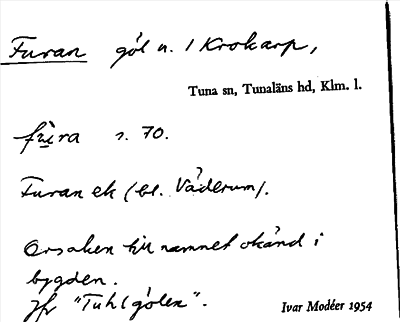 Furan göl n. / Krokarp,
Tuna sn, Tunaläns hd, Klm. l.
fu̱ra s. 70.
Furan ek (bl. Våderum).
Orsaken till namnet okänd i
bygden.
Jfr "Tuhlgölen".
Ivar Modéer 1954